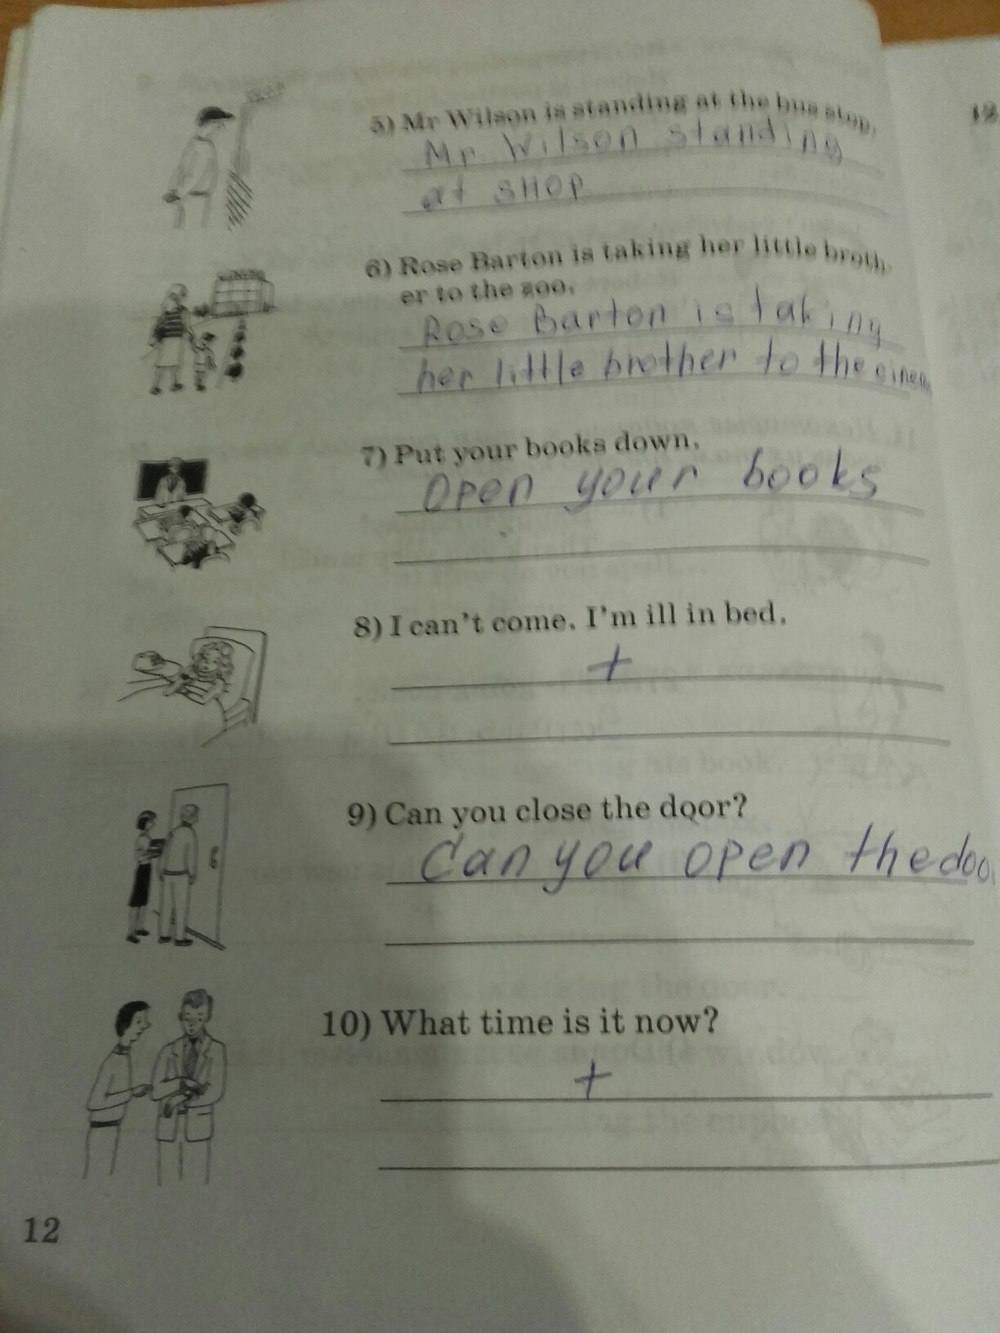 5) Mr Wilson is standing at the bus stop.
Mr Wilson standing
at SHOP
6) Rose Barton is taking her little broth-
er to the zoo.
Rose Barton is taking
her little brother to the cinema
7) Put your books down.
Open your books
8) I can't come. I'm ill in bed.
+
9) Can you close the door?
Can you open the doo
10) What time is it now?
+
12